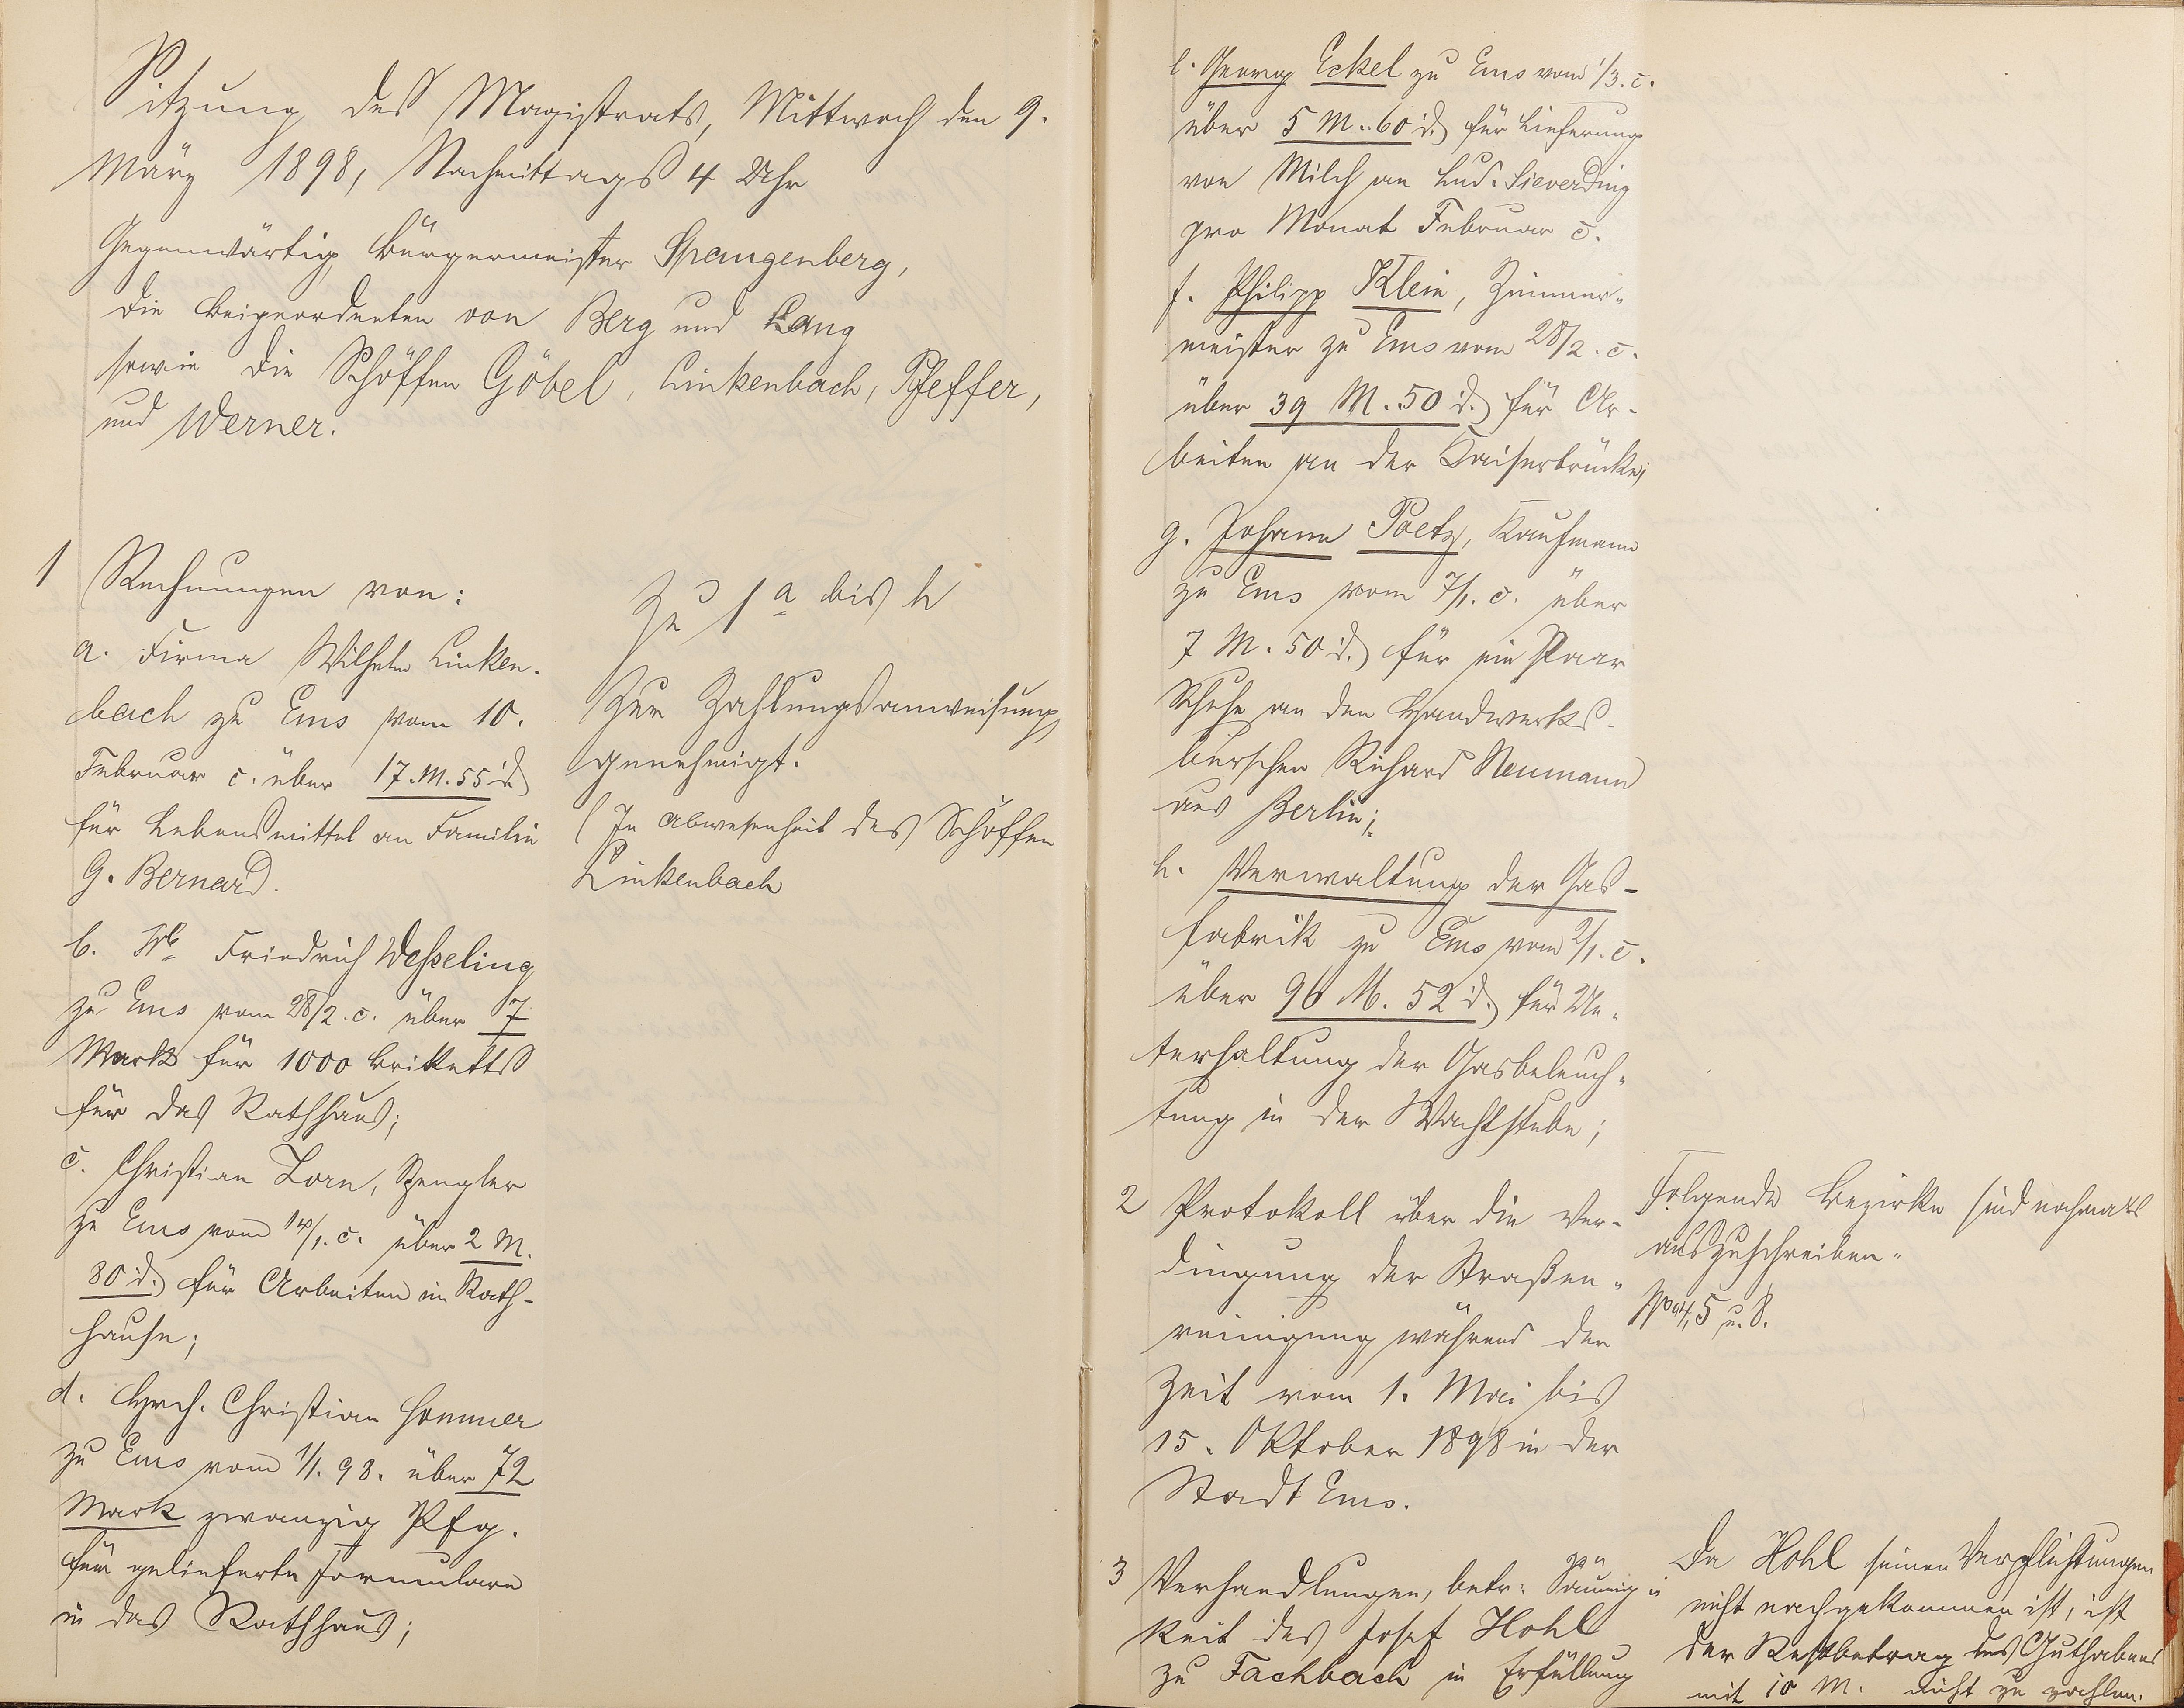 Sitzung des Magistrats, Mittwoch den 9.
März 1898, Nachmittags 4 Uhr
Gegenwärtig Bürgermeister Spangenberg,
die Beigeordneten von Berg und Lang
sowie die Schöffen Göbel, Linkenbach, Pfeffer,
und Werner.
1 Rechnungen von:
a. Firma Wilhelm Linken-
bach zu Ems vom 10.
Februar c. über 17.M.55 d
für Lebensmittel an Familie
G. Bernard.
b. Wb Friedrich Wesseling
zu Ems vom 28/2.c. über 7
Mark für 1000 Briketts
für das Rathhaus;
c. Christian Zorn, Spengler
zu Ems vom /1.c. über 2 M.
80 d. für Arbeiten im Rath-
hause;
d. Hrch. Christian Sommer
zu Ems vom 1/1.98. über 72
Mark zwanzig Pfg.
für gelieferte Formulare
in das Rathhaus;
Zu 1 a bis h
Zur Zahlungsanweisung
genehmigt.
(In Abwesenheit des Schöffen
Linkenbach
e. Georg Eckel zu Ems vom 1/3.c.
über 5 M..60 d. für Lieferung
von Milch an Lud. Sieverding
pro Monat Februar c.
f. Philipp Klein, Zimmer-
meister zu Ems vom 28/2.c.
über 39 M..50 d. für Ar-
beiten an der Kaiserbrücke;
g. Johann Paetz, Kaufmann
zu Ems vom 7/1.c. über
7 M.50 d. für ein Paar
Schuhe an den Handwerks-
burschen Richard Neumann
aus Berlin;
h. Verwaltung der Gas-
fabrik zu Ems vom 2/1.c.
über 96 M. 52 d. für Un-
terhaltung der Gasbeleuch-
tung in der Wachtstube;
2 Protokoll über die Ver-
dingung der Straßen-
reinigung während der
Zeit vom 1. Mai bis
15. Oktober 1898 in der
Stadt Ems.
Folgende Bezirke sind nochmals
auszuschreiben.
No 4, 5 u. 8.
3 Verhandlungen, betr. Säumig-
keit des Josef Hohl
zu Fachbach in Erfüllung
Da Hohl seinen Verpflichtungen
nicht nachgekommen ist, ist
der Restbetrag des Guthabens
mit 10 M. nicht zu zahlen.